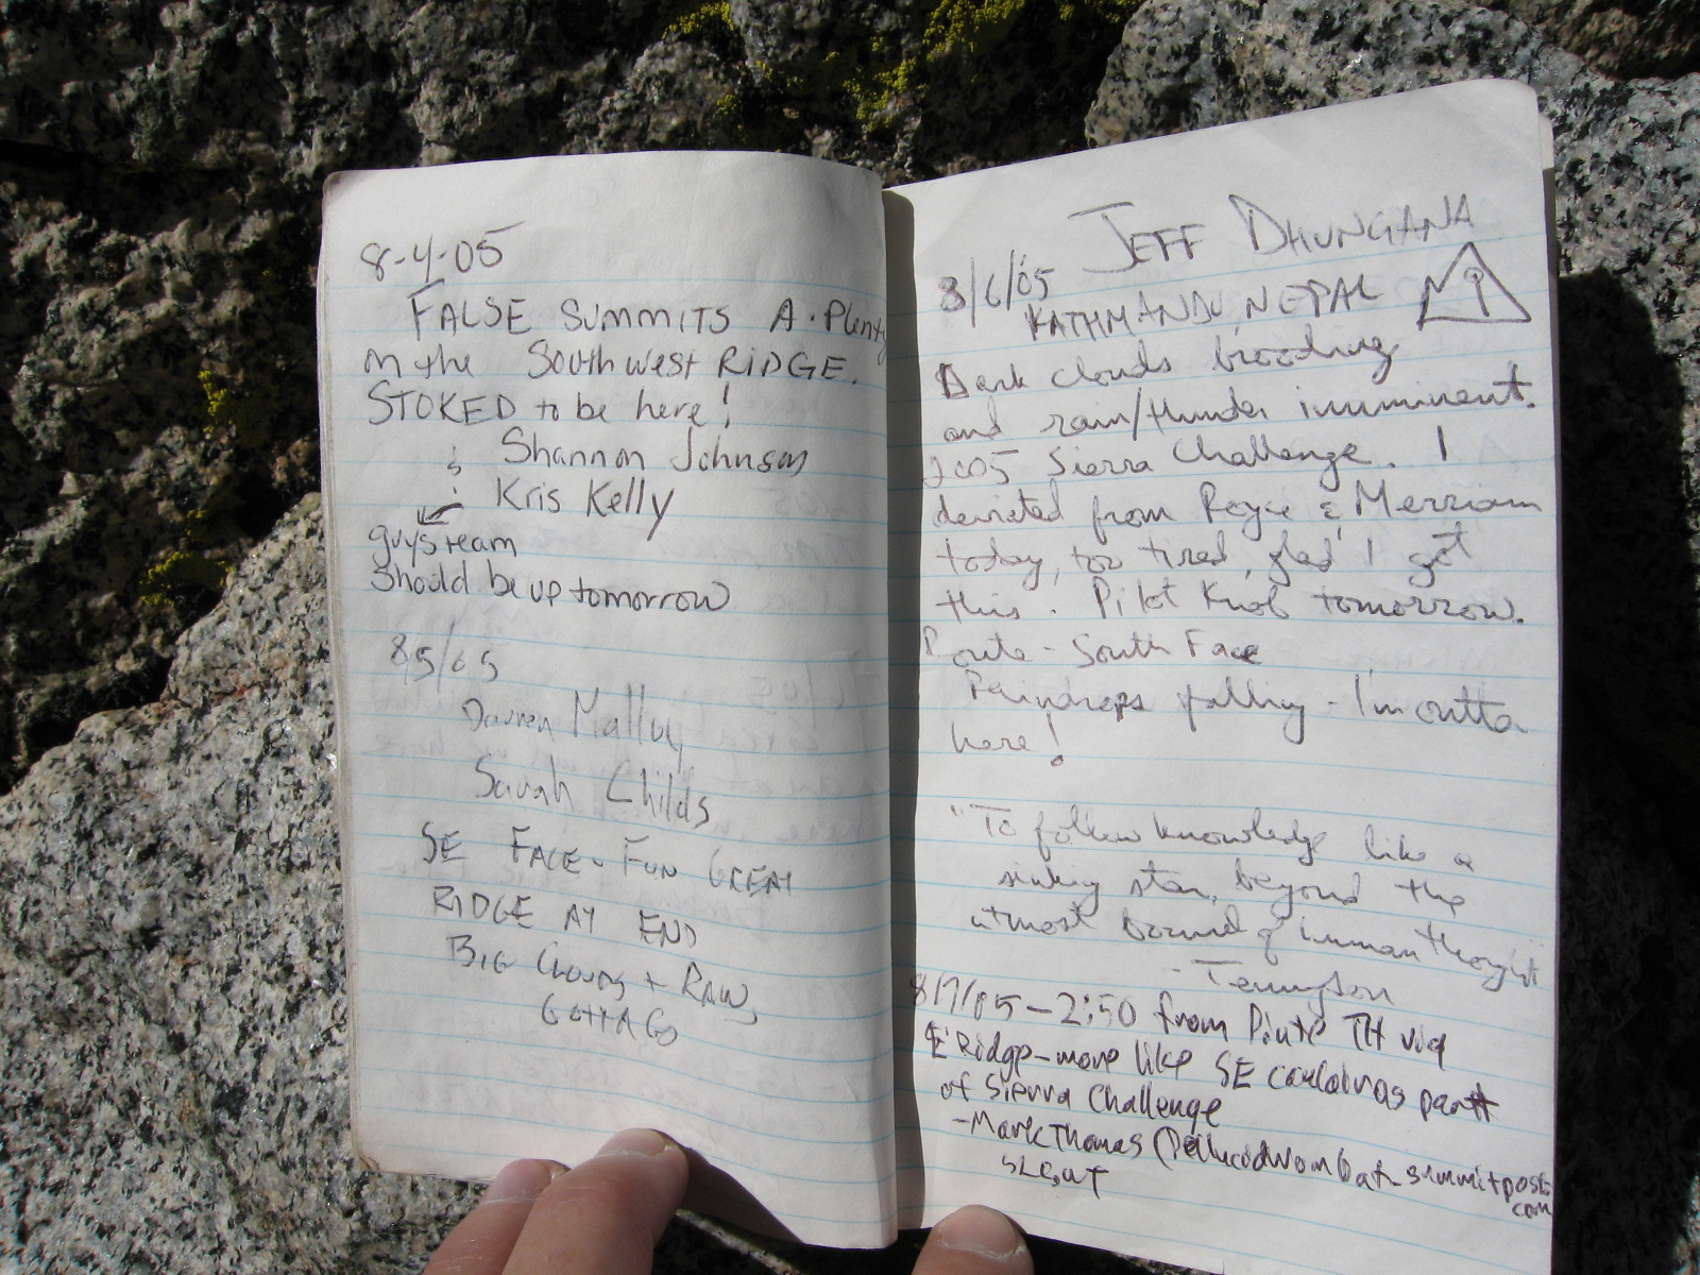 8-4-05
FALSE SUMMITS A-Plenty
on the Southwest RIDGE.
STOKED to be here!
Shannon Johnson
& Kris Kelly
guys team
should be up tomorrow
8/5/05
Darren Malloy
Sarah Childs
SE FACE - FUN GREAT
RIDGE AT END
BIG CLOUDS + RAIN,
GOTTA GO
JEFF DHUNGANA
8/6/05
KATHMANDU, NEPAL
Dark clouds brooding
and rain/thunder imminent.
2005 Sierra Challenge. I
deviated from Royce & Merriam
today, too tired, glad I got
this. Pilot Knob tomorrow.
Route - South Face
Raindrops falling - I'm outta
here!
"To follow knowledge like a
sinking star, beyond the
utmost bound of human thought
- Tennyson
8/7/05 - 2:50 from Piute TH via
E Ridge - more like SE as part
of Sierra Challenge
- Mark Thomas (Pellucid Wombat - summitpost.
com
SLC, UT